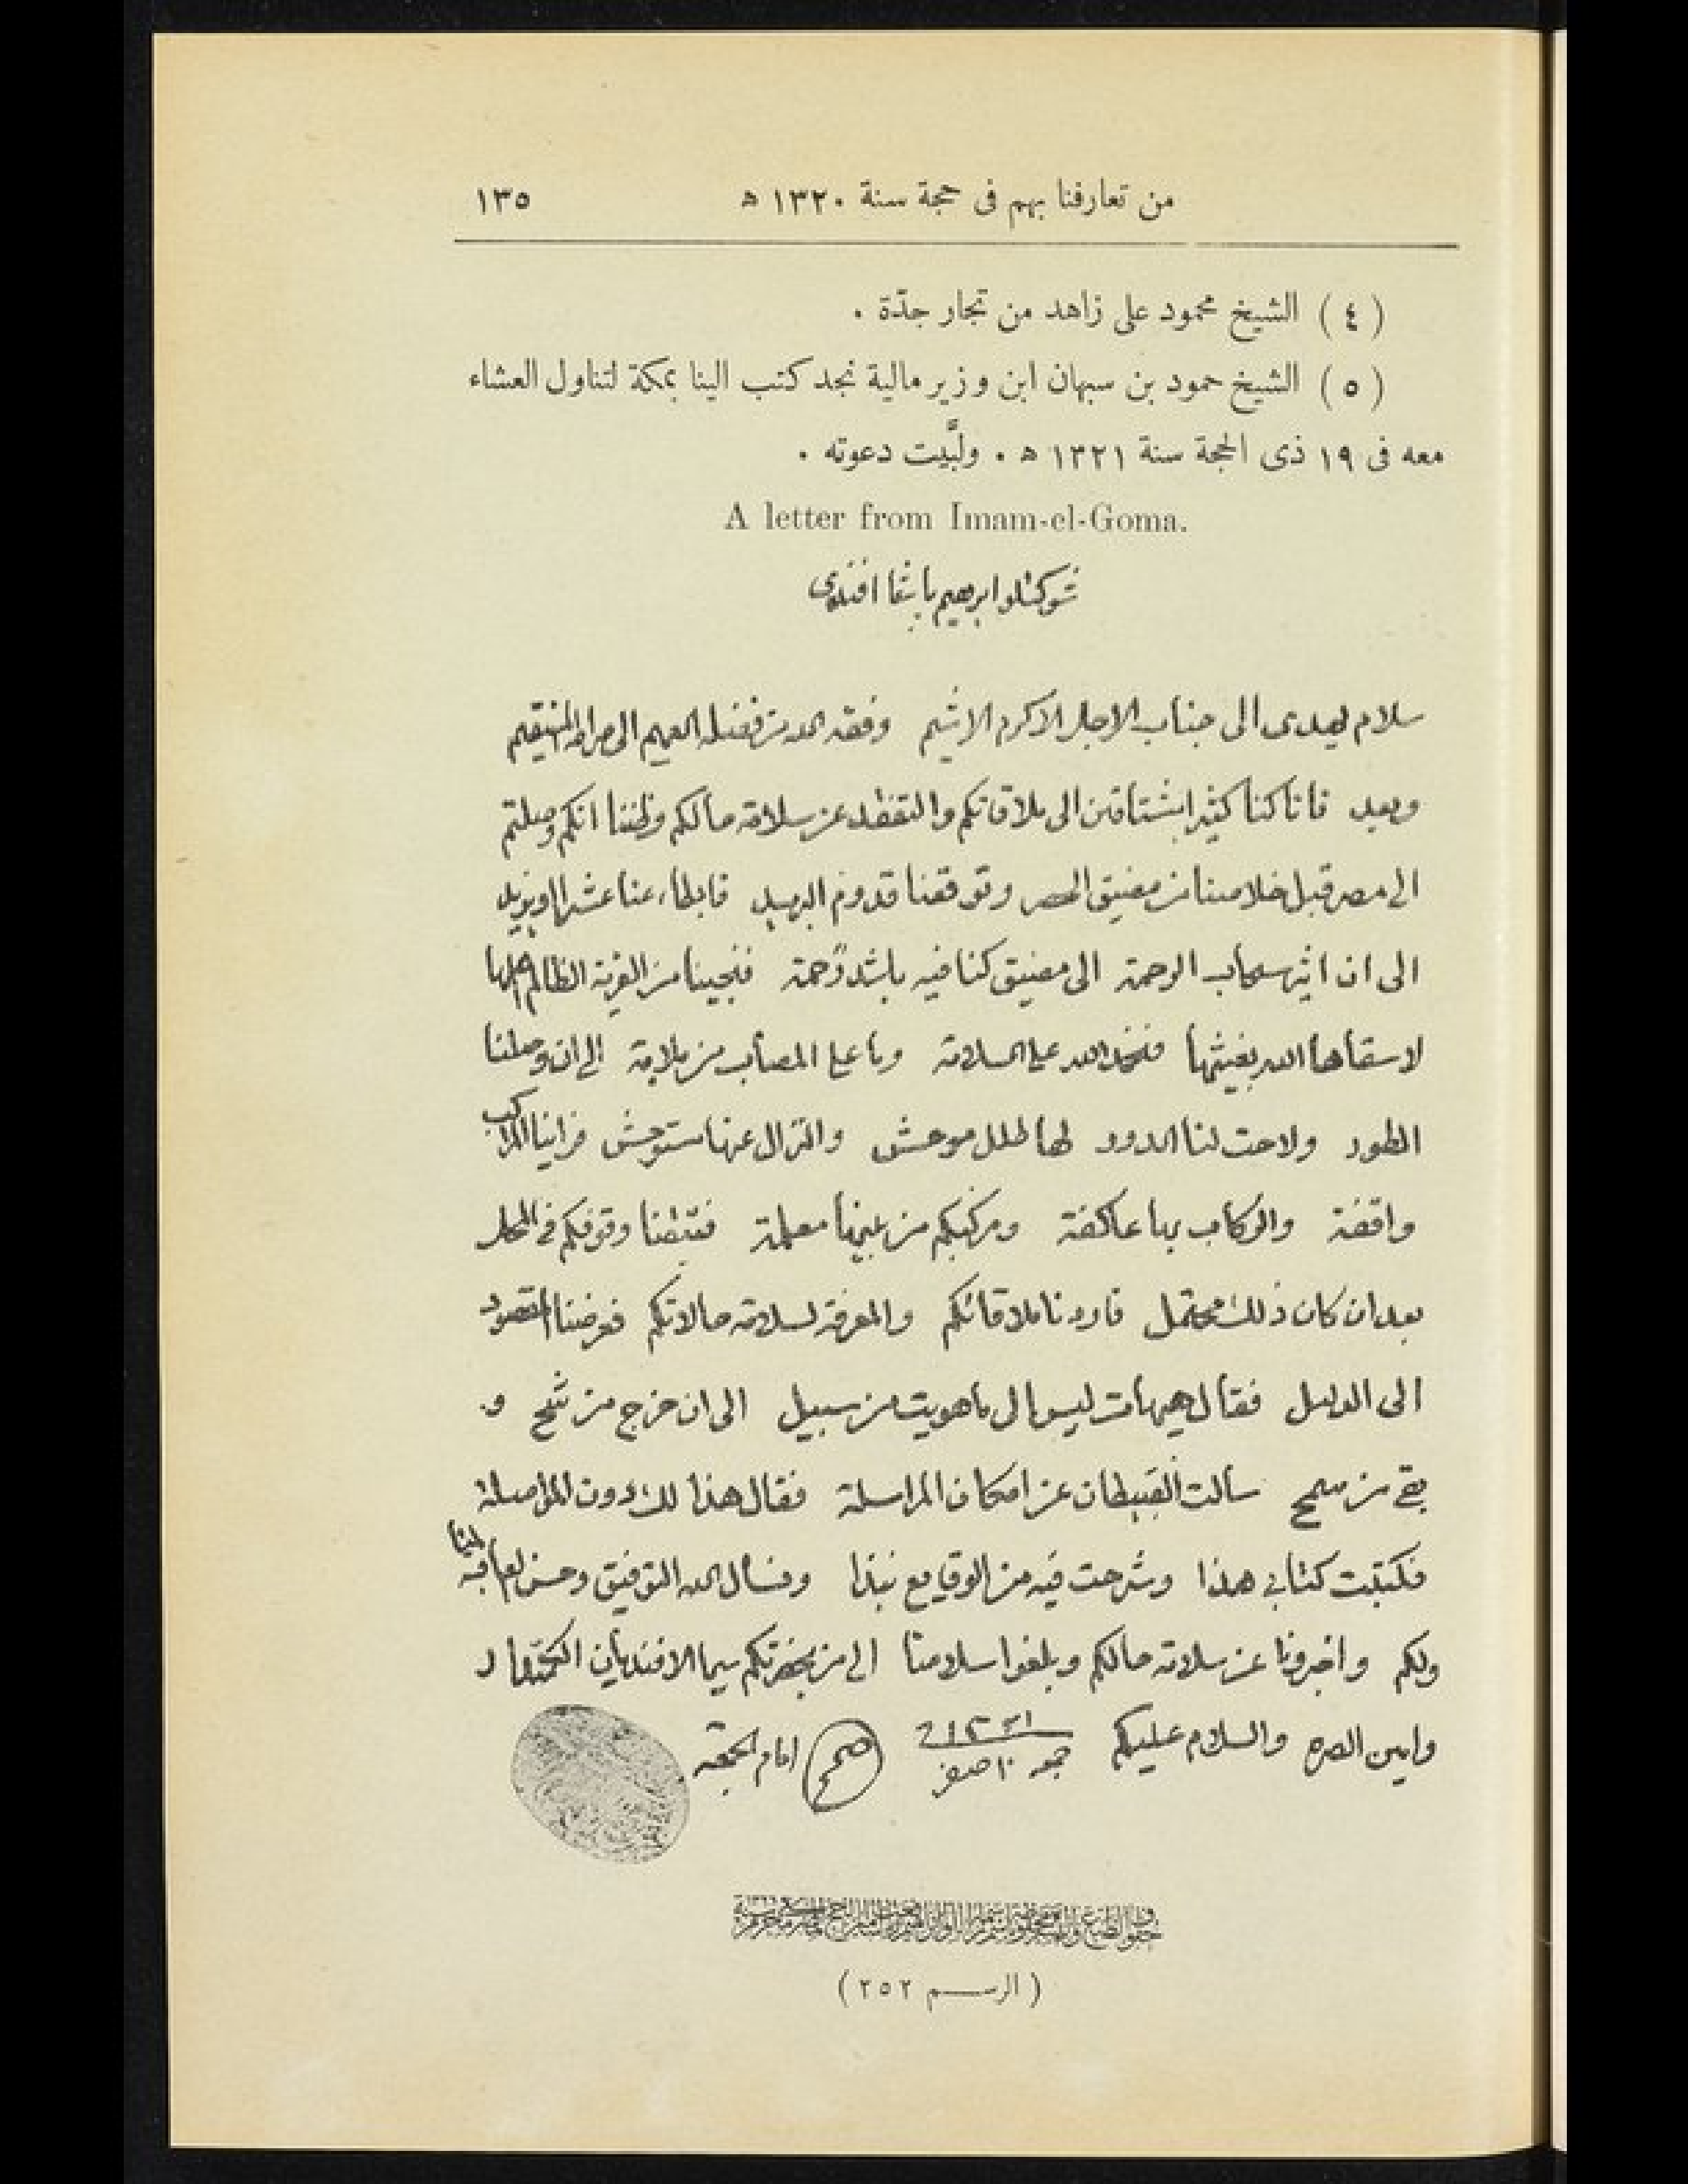 من تعارفنا بهم فى حجة سنة ١٣٢٠ هـ ١٣٥
(٤) الشيخ محمود على زاهد من تجار جدّة .
(٥) الشيخ حمود بن سبهان ابن وزير مالية نجد كتب الينا بمكة لتناول العشاء
معه فى ١٩ ذى الحجة سنة ١٣٢١ هـ . ولبَّيت دعوته .
A letter from Imam-el-Goma.
شوكتلو ابرهيم باشا افندى
سلام يهدى الى جناب الاجل الاكرم الاشيم وفقه الله من فضله العميم الى صراط المستقيم
وبعد فانا كنا كثيرا مشتاقين الى ملاقاتكم والتفقد عن سلامة حالكم وظننا انكم وصلتم
الى مصر قبل خلاصنا من مضيق الحصر وتوقعنا قدوم البريد فابطاء عنا عشرا او يزيد
الى ان اثير سحاب الرحمة الى مضيق كنا فيه باشد زحمة فنجينا من القرية الظالم اهلها
لاسقاها الله بغيثها فنحمد الله على السلامة وما على المصاب من ملامة الى ان وصلنا
الطور ولاحت لنا الدور لها طلل موحش والنزال عنها مستوحش فراينا المراكب
واقفة والركاب بها عاكفة ومركبكم من بينها معلمة فتيقنا وقوفكم فى المحل
بعد ان كان ذلك محتمل فاردنا ملاقاتكم والمعرفة لسلامة حالاتكم فعرضنا المقصود
الى الدليل فقال هيهات ليس الى ما هويت من سبيل الى ان خرج من شح و
بقى من سمح سالت القبطان عن امكان المراسلة فقال هذا لك دون المواصلة
فكتبت كتابى هذا وشرحت فيه من الوقايع نبذا ونسأل الله التوفيق وحسن العافية لنا
ولكم واخبرونا عن سلامة حالكم وبلغوا سلامنا الى من بحضرتكم سيما الافنديان
وامين الصره والسلام عليكم ١٠ صفر امام الجمعه
( الرسم ٢٥٢ )